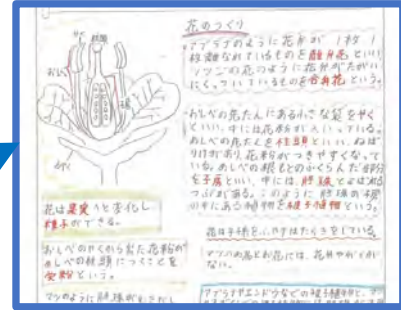 花のつくり
アブラナのように花弁が1枚1
枚離れているものを離弁花といい
ツツジの花のように花弁がたがい
にくっついているものを合弁花という。
おしべの先たんにある小さな袋をやく
といい、中には花粉が入っている。
めしべの先たんを柱頭といい、ねば
りけがあり、花粉がつきやすくなって
いる。めしべの根もとのふくらんだ部分
を子房といい、中には、胚珠とよばれる
つぶがある。このように胚珠が子房
の中にある植物を被子植物という。
花は子孫をふやすはたらきをしている。
マツの花には、花弁やがくが
ない。
柱頭
おしべ
子房
がく
花は果実へと変化し
種子ができる。
おしべのやくから出た花粉が
めしべの柱頭につくことを
受粉という。
マツのように胚珠がむきだし
アブラナやエンドウなどの被子植物